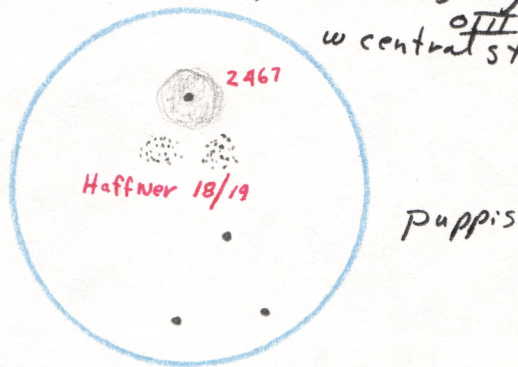 OIII
w central
2467
Haffner 18/19
Puppis